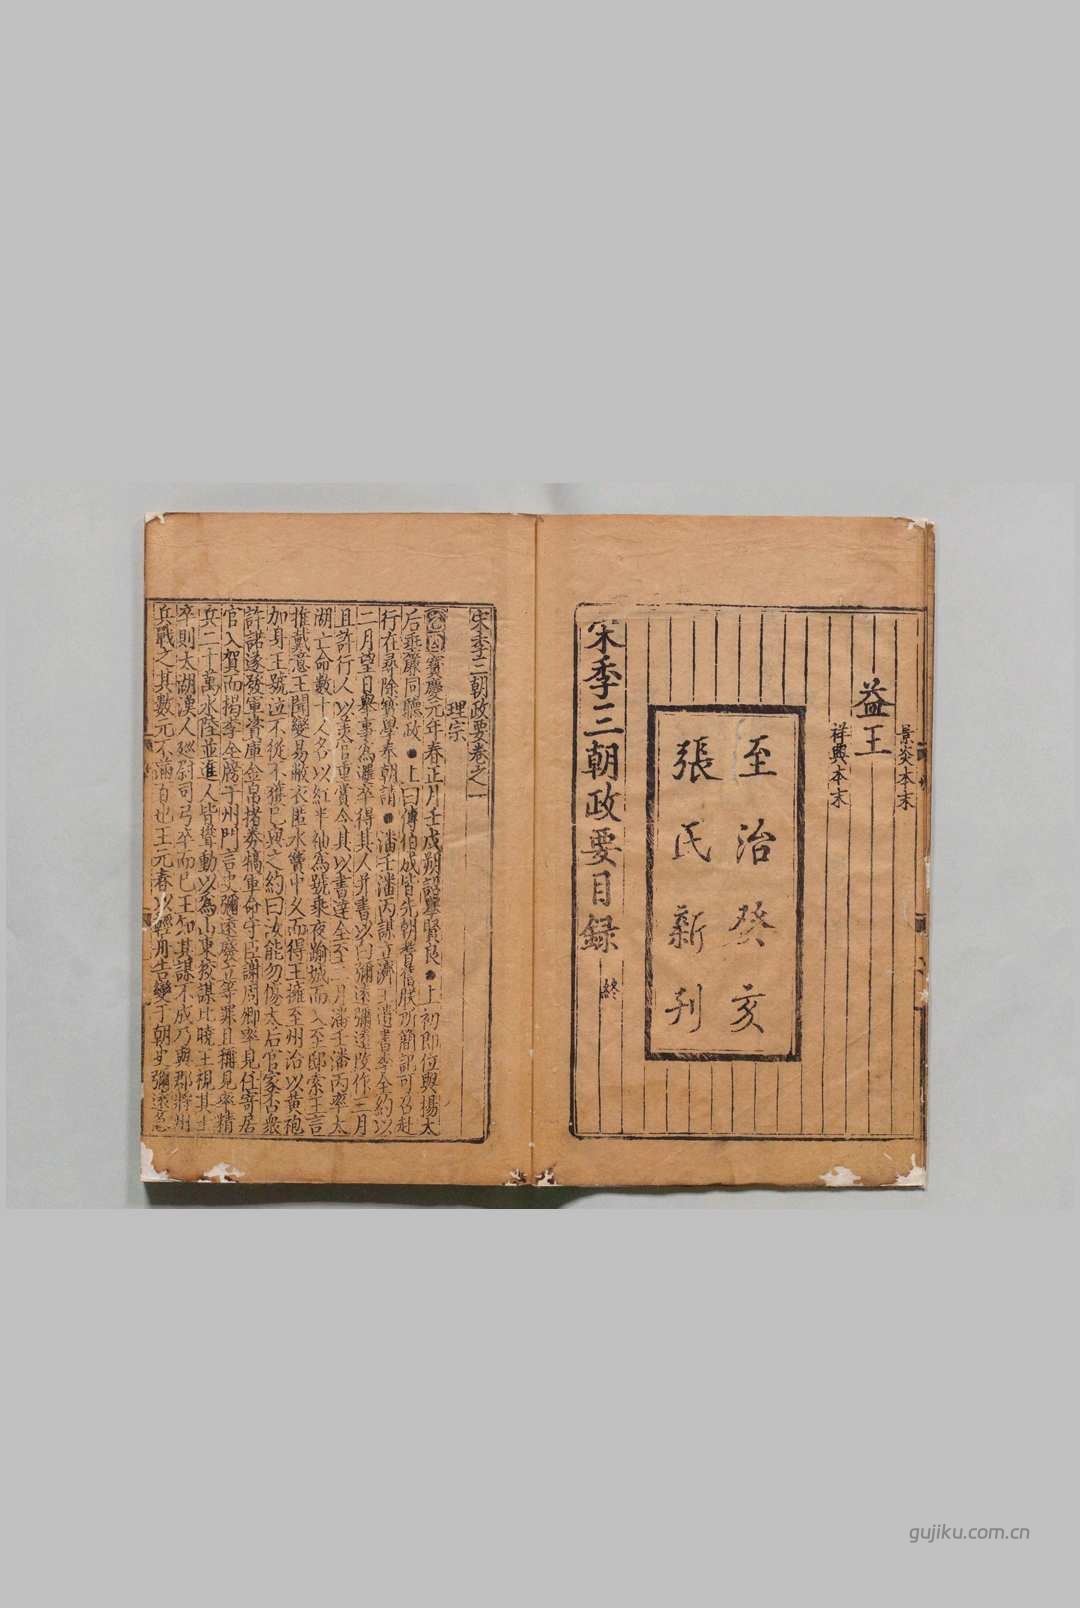 景炎本末
益王
祥興本末
至治癸亥
張氏新刋
宋季三朝政要目録 終
宋季三朝政要卷之一
理宗
乙酉寶慶元年春正月壬戌朔詔舉賢良●上初即位與揚太
后垂簾同聽政●上曰傅伯成皆先朝耆舊朕所簡記可召赴
行在尋除 學奉朝請●潘壬潘丙謀立濟王遺書李全約以
二月望日舉事為邏卒得其人并書以白彌遠彌遠改作三月
且許行人以美官重賞令其以書達全至二月潘壬潘丙率太
湖亡命數十人名以紅半袖為號乘夜踰城而入至邸索王言
推戴意王聞變易敝衣匿水竇中久而得王擁至州治以黄袍
加身王號泣不從不獲已與之約曰汝能勿傷太后官家否衆
許諾遂發軍資庫金帛楮券犒軍命守臣謝周卿率見任寄居
官入賀而揭李全牓于州門言史彌遠廢立等罪且稱見率精
兵二十萬水陸並進人皆聳動以為山東狡謀比曉王視其士
卒則太湖漢人巡尉司弓卒而已王知其謀不成乃與郡將州
兵戰之其數元不滿百也王元春以輕舟告變于朝史彌遠
gujiku.com.cn